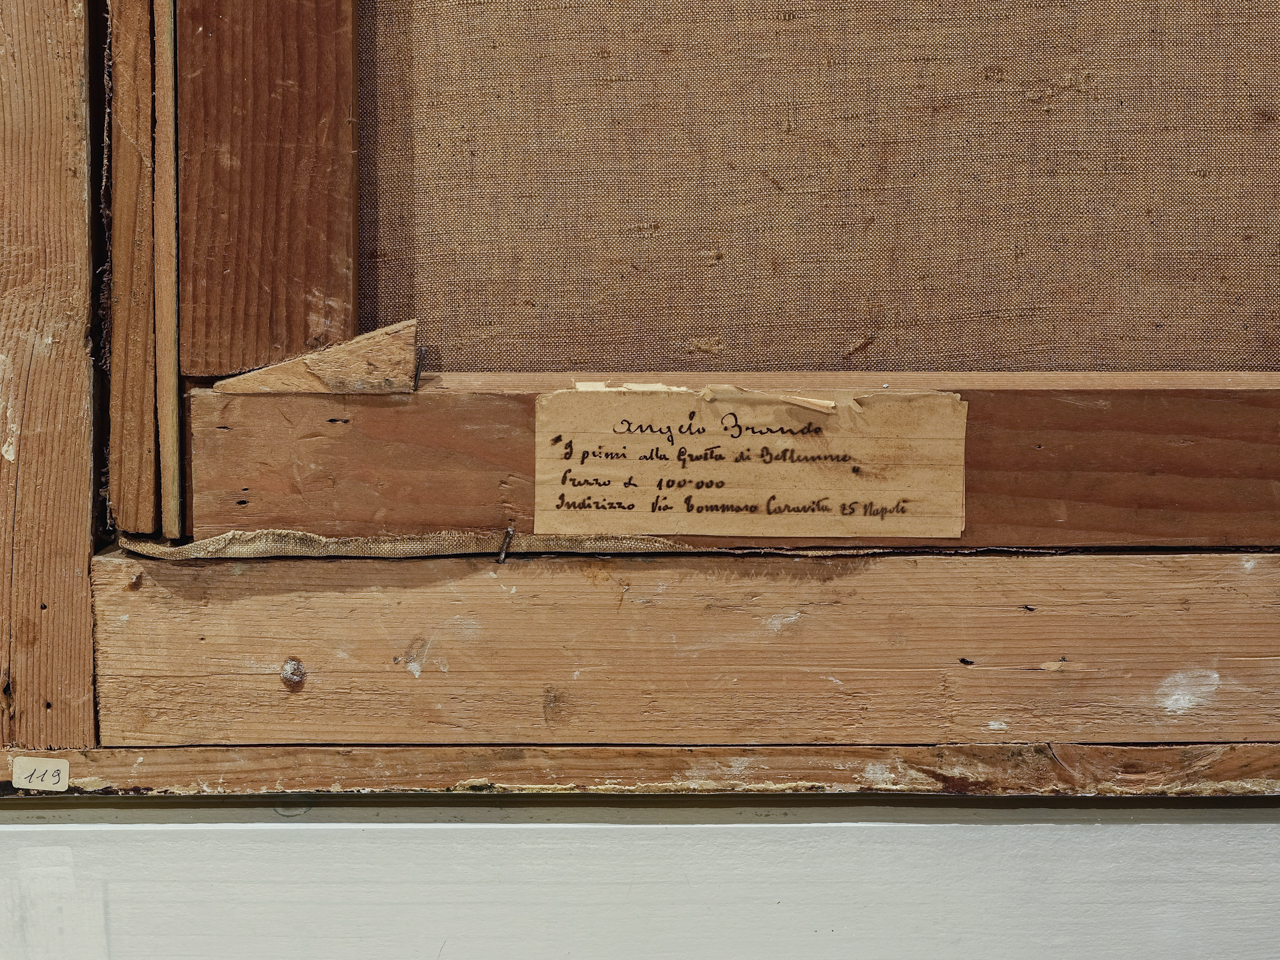 Angelo Brando
"I primi alla Grotta di Betlemme"
Prezzo £ 100.000
Indirizzo Via Tommaso Caravita 25 Napoli
119